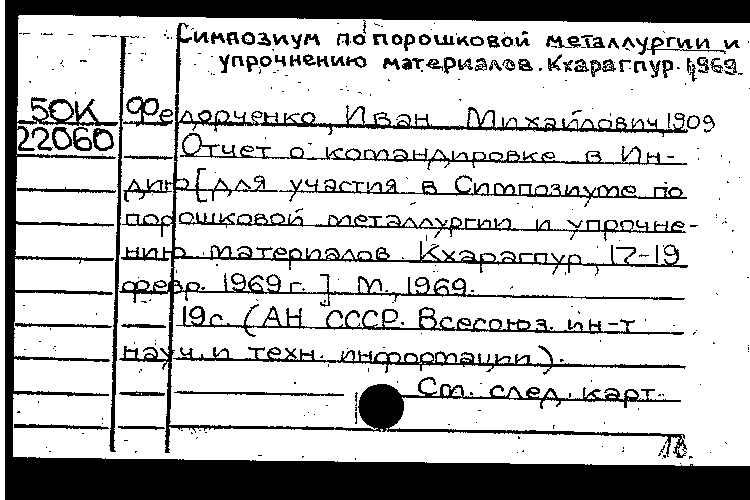 Симпозиум по порошковой металлургии и
упрочнению материалов. Кхарагпур. 1969.
50К Федорченко, Иван Михайлович, 1909
22060 Отчет о командировке в Ин-
дию [для участия в Симпозиуме по
порошковой металлургии и упрочне-
нию материалов Кхарагпур, 17-19
февр. 1969 г.] М., 1969.
19с. (АН СССР. Всесоюз. ин-т
науч. и техн. информации).
См. след. карт.